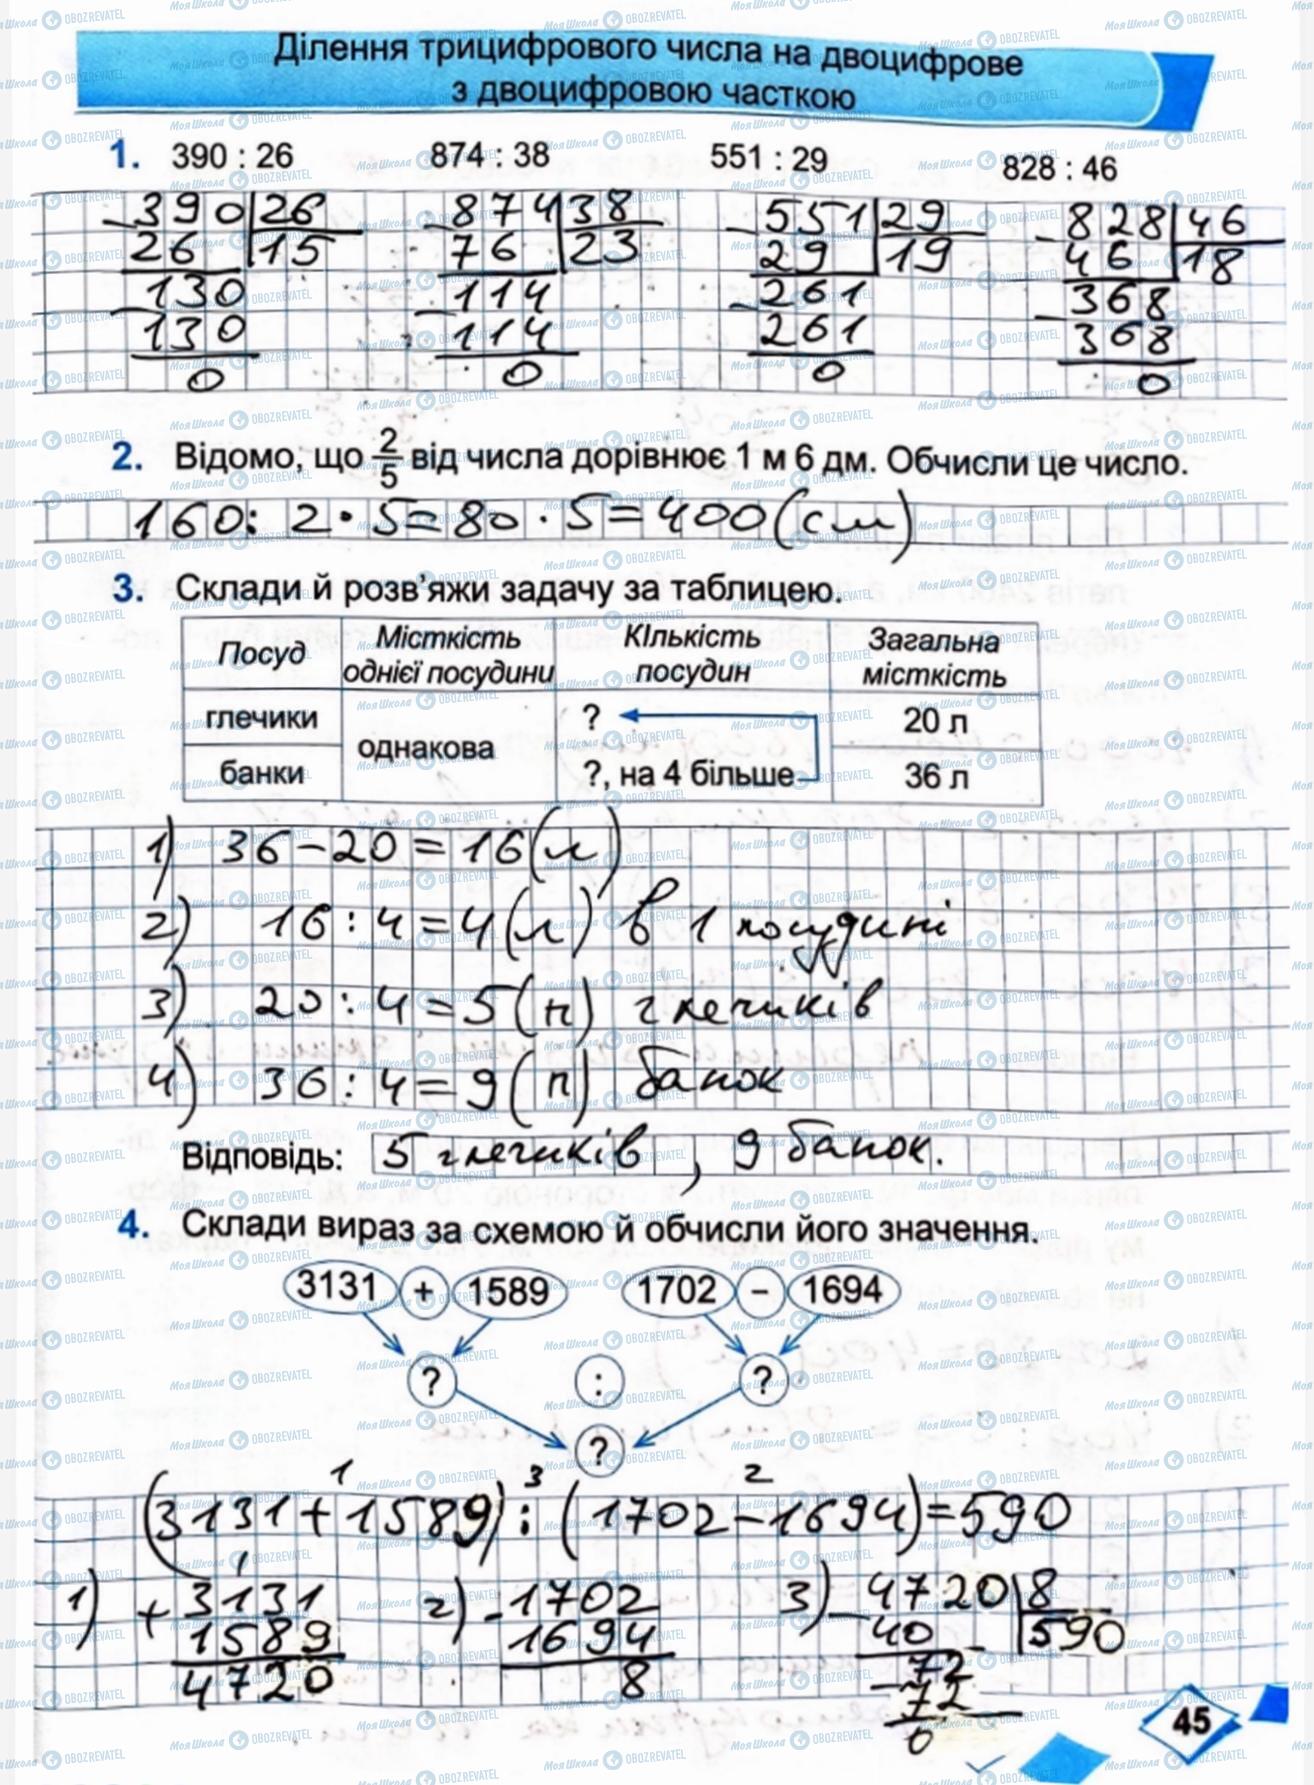 Ділення трицифрового числа на двоцифрове
з двоцифровою часткою
1. 390 : 26 874 : 38 551 : 29 828 : 46
-390|26 -874|38 -551|29 -828|46
26 |15 76 |23 29 |19 46 |18
-130 -114 -261 -368
130 114 261 368
0 0 0 0
2. Відомо, що 2/5 від числа дорівнює 1 м 6 дм. Обчисли це число.
160 : 2 · 5 = 80 · 5 = 400 (см)
3. Склади й розв'яжи задачу за таблицею.
Посуд Місткість однієї посудини КІлькість посудин Загальна місткість
глечики однакова ? 20 л
банки ?, на 4 більше 36 л
1) 36 - 20 = 16 (л)
2) 16 : 4 = 4 (л) в 1 посудині
3) 20 : 4 = 5 (п) глечиків
4) 36 : 4 = 9 (п) банок
Відповідь: 5 глечиків, 9 банок.
4. Склади вираз за схемою й обчисли його значення.
3131 + 1589 1702 − 1694
? : ?
?
1 3 2
(3131 + 1589) : (1702 - 1694) = 590
1) +3131 2) -1702 3) -4720|8
1589 1694 40 |590
4720 8 -72
72
0
45
МояШкола OBOZREVATEL